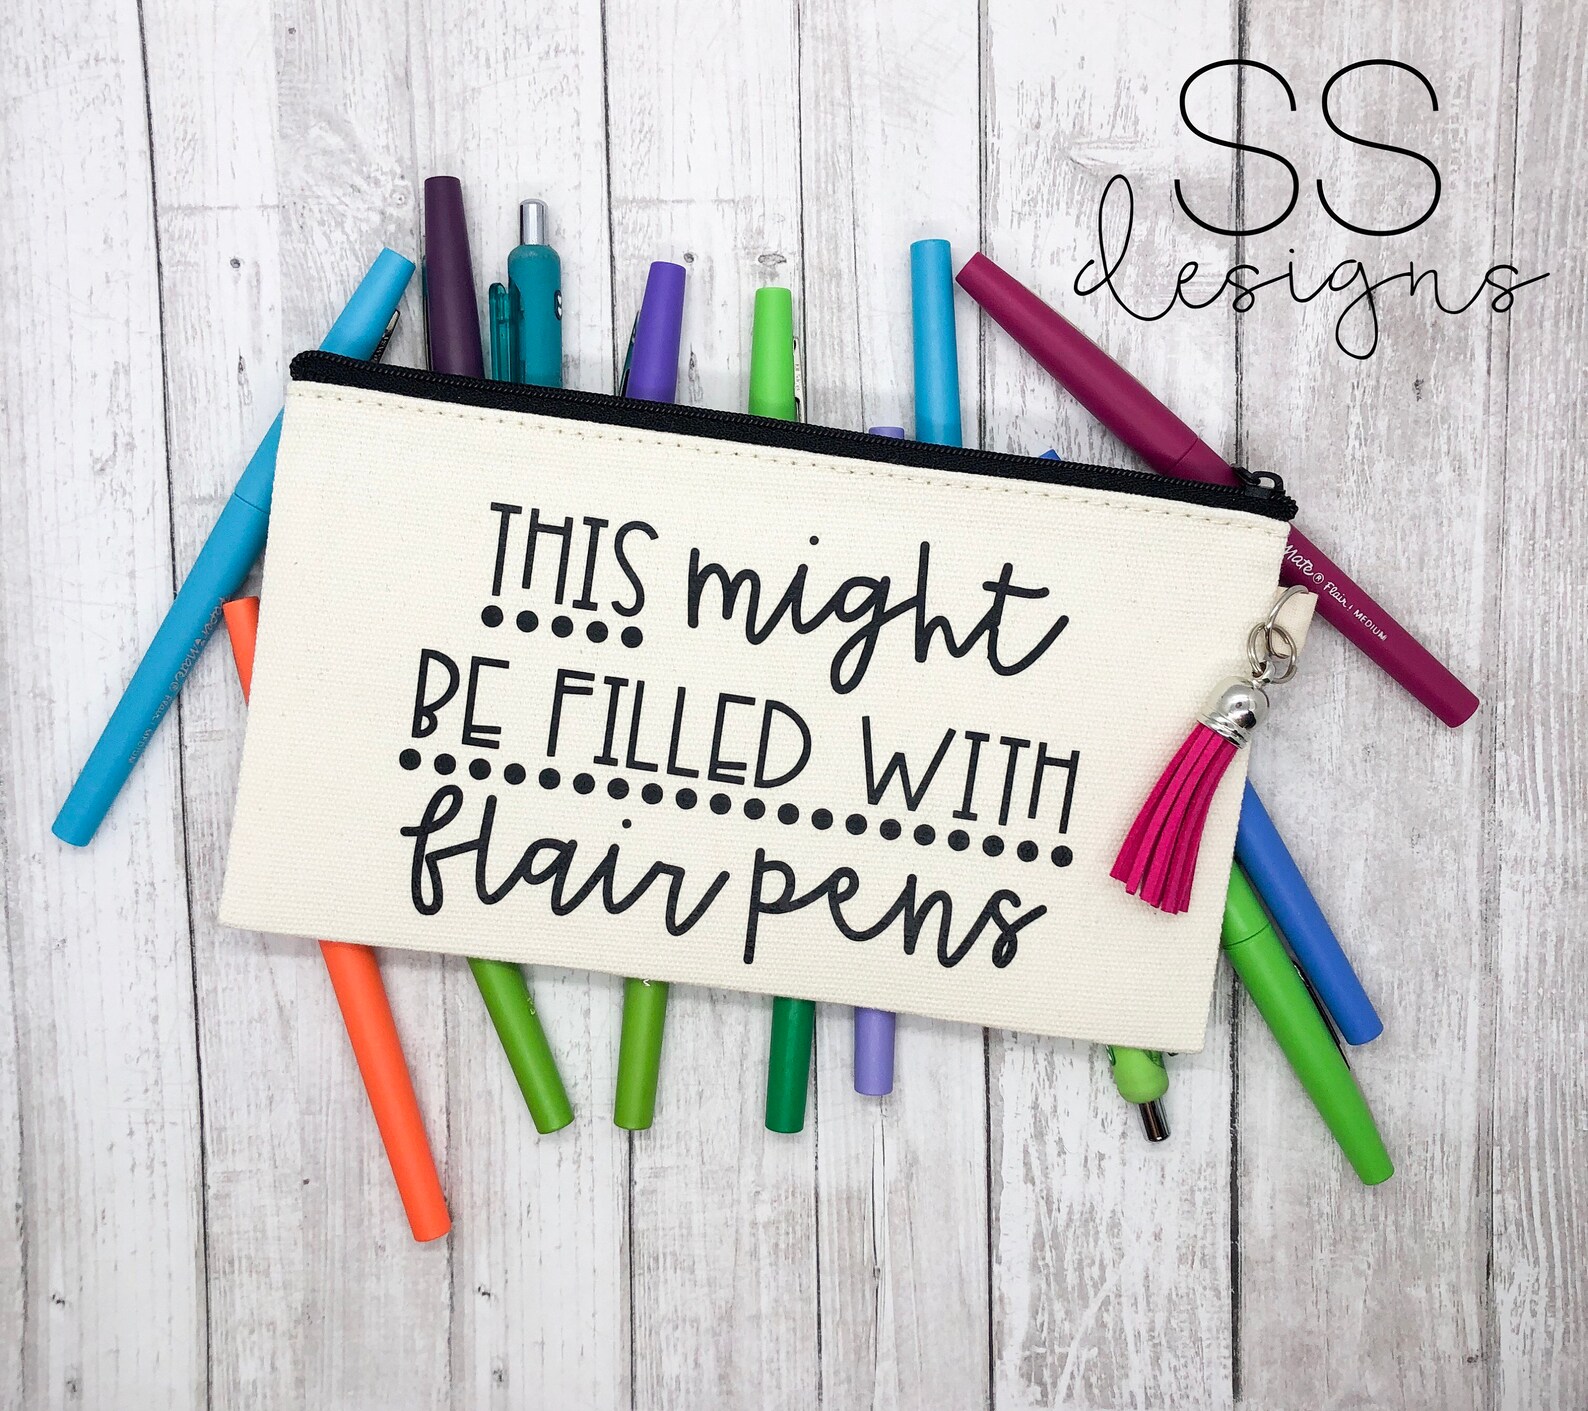 SS
designs
THIS might
BE FILLED WITH
flair pens
Mate® Flair | MEDIUM
Paper Mate® Flair | MEDIUM